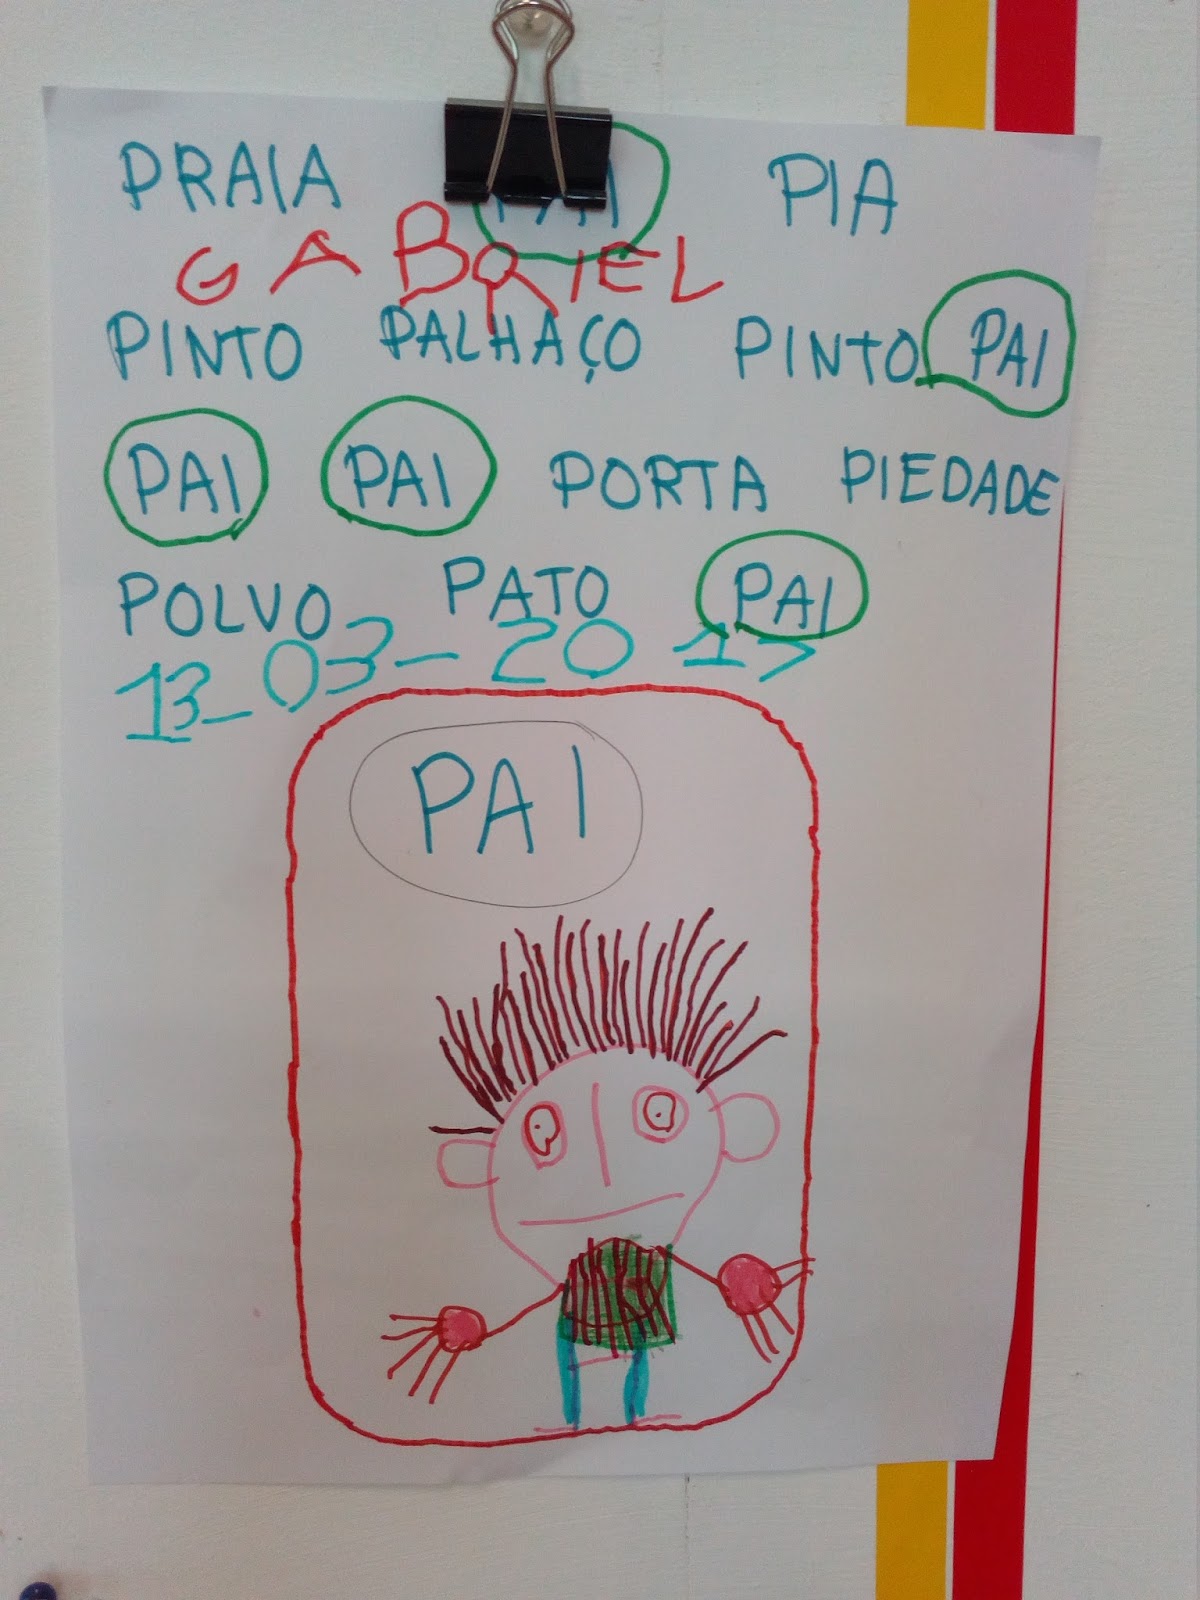 PRAIA PAI PIA
GABRIEL
PINTO PALHAÇO PINTO PAI
PAI PAI PORTA PIEDADE
POLVO PATO PAI
13-03-2017
PAI